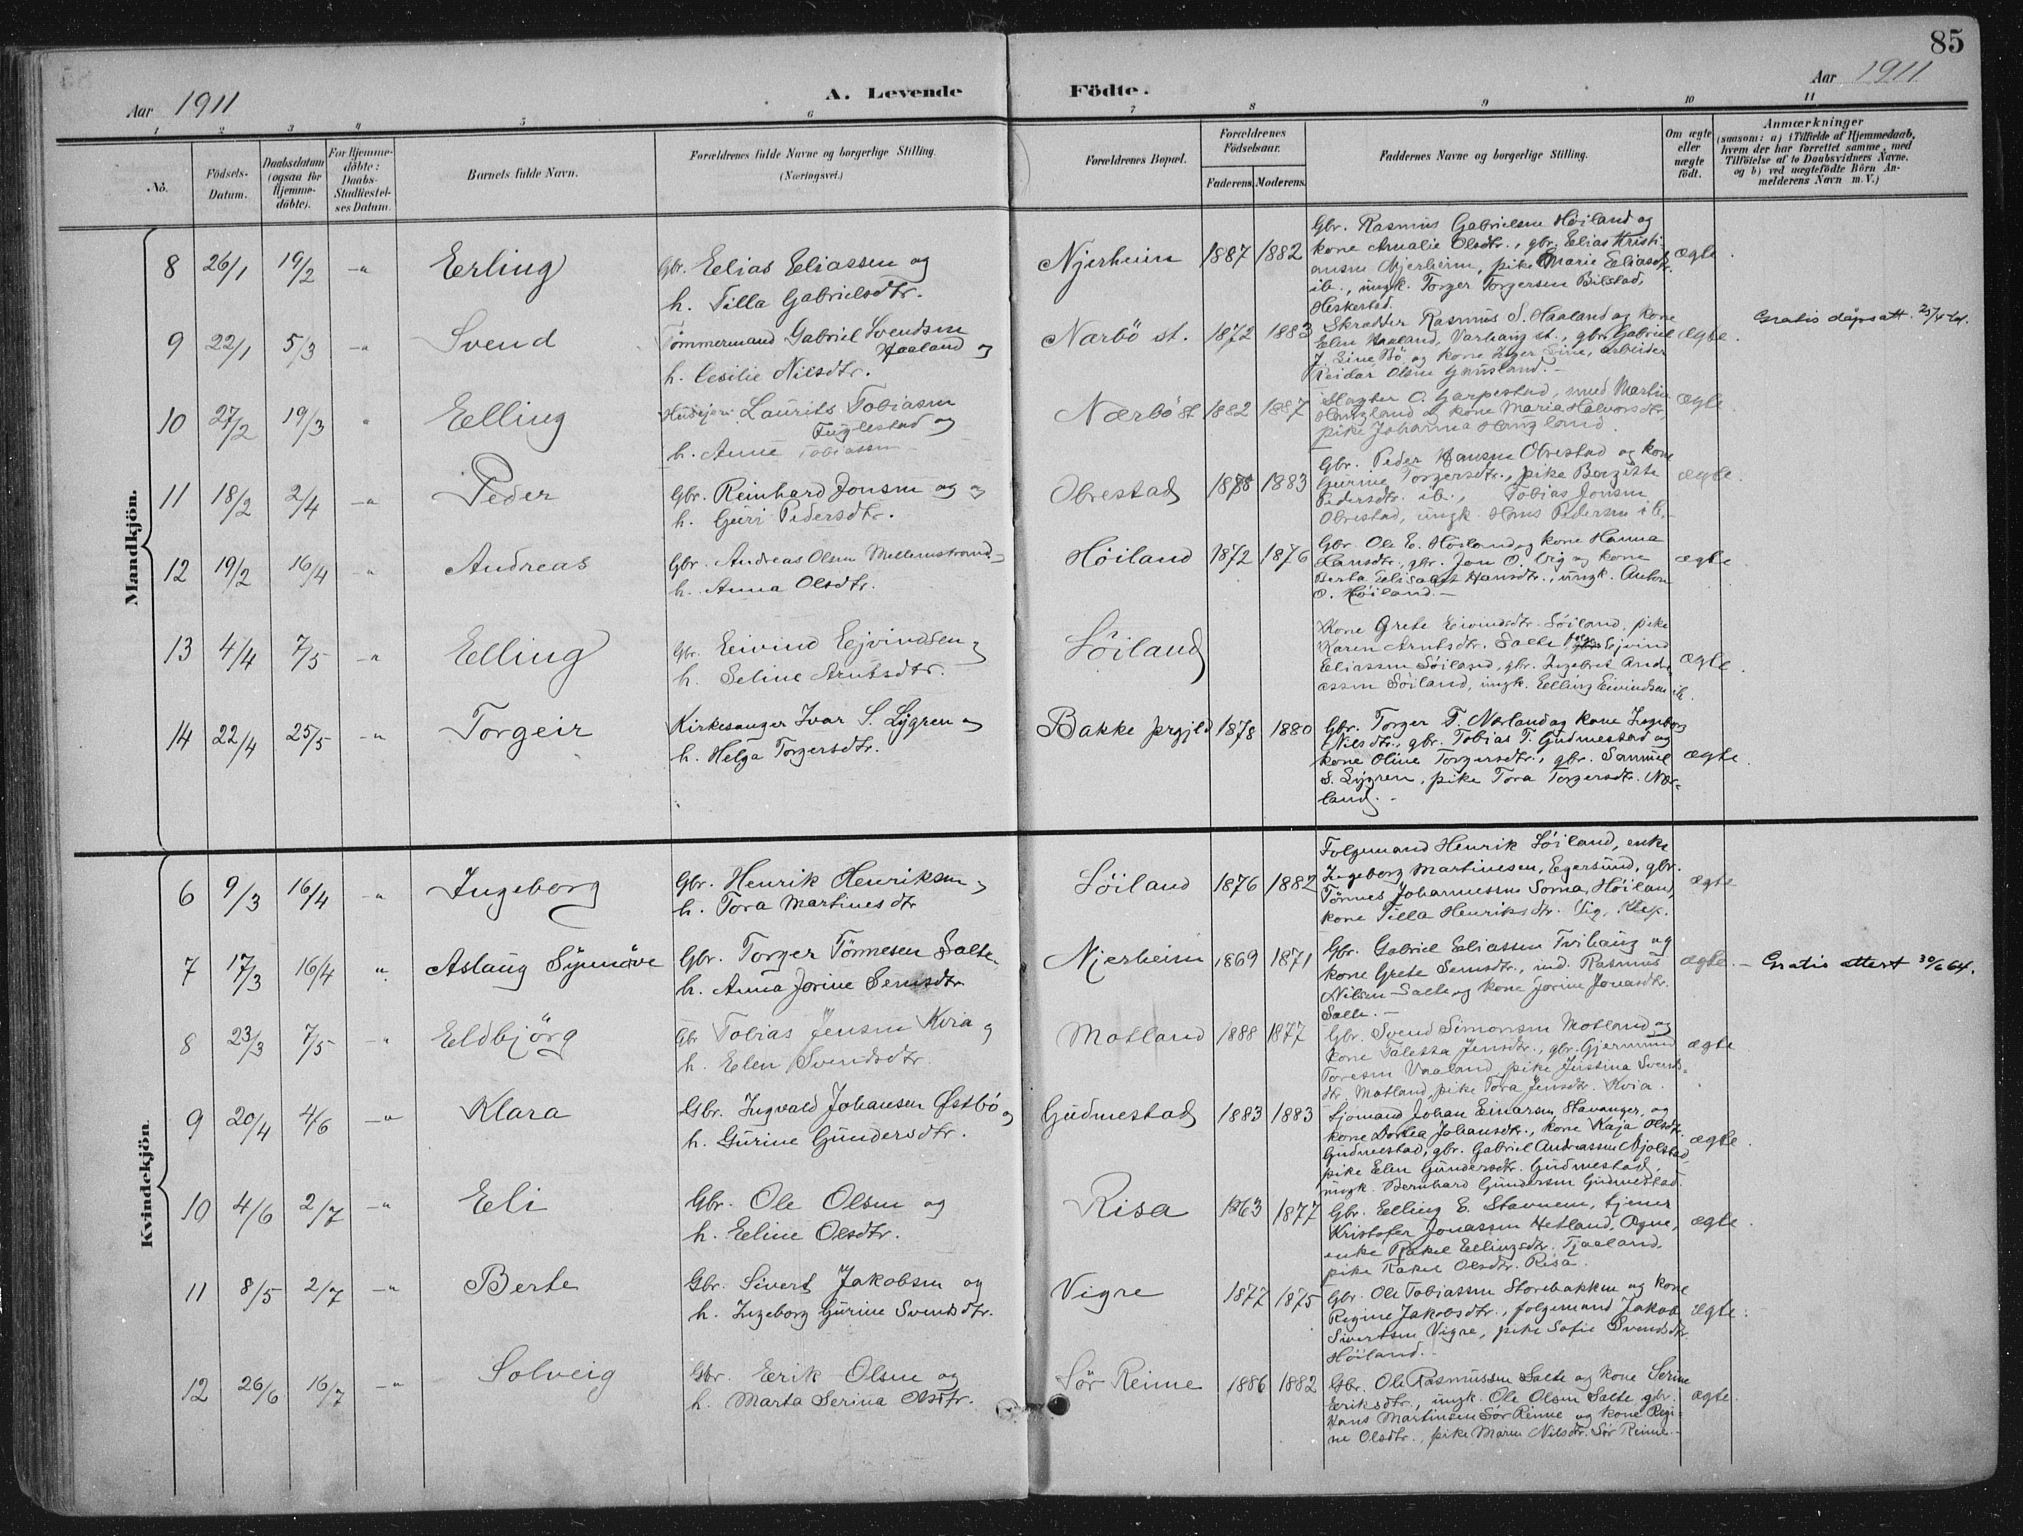 85
Aar 1911
A. Levende
Födte.
Aar 1911
1 2 3 4 5 6 7 8 9 10 11
No.
Födsels-
Datum.
Daabsdatum
(ogsaa for
Hjemme-
döbte).
For Hjemme-
döbte:
Daabs-
Stadfæstel-
ses Datum.
Barnets fulde Navn.
Forældrenes fulde Navne og borgerlige Stilling.
(Næringsvei.)
Forældrenes Bopæl.
Forældrenes
Födselsaar.
Faderens. Moderens.
Faddernes Navne og borgerlige Stilling.
Om ægte
eller
uægte
födt.
Anmærkninger
(saasom: a) i Tilfælde af Hjemmedaab,
hvem der har forrettet samme, med
Tilföielse af to Daabsvidners Navne,
og b) ved uægtefödte Börn An-
melderens Navn m. V.)
Mandkjön.
8 26/1 19/2 -"- Erling
Gbr. Elias Eliassen og
h. Tilla Gabrielsdtr.
Njerheim 1887 1882
Gbr. Rasmus Gabrielsen Høiland og
kone Amalie Olsdtr., gbr. Elias Kristi-
ansen Njerheim, pike Marie Eliasdtr.
ib., ungk. Torger Torgersen Bilstad,
Heskestad.
ægte.
9 22/1 5/3 -"- Svend
Tømmermand Gabriel Svendsen
Haaland og
h. Cecilie Nilsdtr.
Nærbö st. 1872 1883
Skrædder Rasmus S. Haaland og kone
Elen Haaland, Varhaug st., gbr. Gabriel
J. Line Bö og kone Inger Line, arbeider
Reidar Olsen Gausland.-
ægte.
Gratis dåpsatt. 25/4 41.
10 27/2 19/3 " Elling
Laurits Tobiasen
Fuglestad og
h. Anne Tobiassen
Nærbö st 1882 1887
Slagter O. Garpestad, smed Martin
Haugland og kone Maria Halvorsdtr.,
pike Johanna Haugland.
ægte.
11 18/2 2/4 -"- Peder
Gbr. Reinhard Jonsen og
h. Guri Pedersdtr.
Obrestad 1878 1883
Gbr. Peder Hansen Obrestad og kone
Gurine Torgersdtr., pike Bergitte
Pedersdtr. ib., Tobias Jonsen
Obrestad, ungk. Hans Pedersen ib.-
ægte.
12 19/2 16/4 -"- Andreas
Gbr. Andreas Olsen Mellemstrand
h. Anna Olsdtr.
Høiland 1872 1876
Gbr. Ole E. Høiland og kone Hanna
Hansdtr., gbr. Jon O. Vig og kone
Berta Elisabet Hansdtr., ungk. Anton
O. Høiland.-
ægte.
13 4/4 7/5 -"- Elling
Gbr. Eivind Ejvindsen og
h. Seline Arntsdtr.
Søiland
Kone Grete Eivindsdtr. Søiland, pike
Karen Arntsdtr. Salte, Ejvind
Eliassen Søiland, gbr. Ingebret Andre-
assen Søiland, ungk. Elling Eivindsen ib.
ægte.
14 22/4 25/5 -"- Torgeir
Kirkesanger Ivar S. Lygren og
h. Helga Torgersdtr.
Bakke prgjld 1878 1880
Gbr. Torger T. Nærland og kone Ingeborg
Nilsdtr., gbr. Tobias T. Gudmestad og
kone Oline Torgersdtr., gbr. Samuel
S. Lygren, pike Tora Torgersdtr. Nær-
land.-
ægte.
Kvindekjön.
6 9/3 16/4 -"- Ingeborg
Gbr. Henrik Henriksen og
h. Tora Martinesdtr
Søiland 1876 1882
Folgemand Henrik Søiland, enke
Ingeborg Martinesen, Egersund, gbr.
Tønnes Johannesen Sorna, Høiland,
kone Tilla Henriksdtr. Vig, Klep.
ægte
7 17/3 16/4 " Aslaug Synnøve
Gbr. Torger Tönnesen Salte og
h. Anna Jorine Semsdtr.
Njerheim 1869 1871
Gbr. Gabriel Eliassen Tvihaug og
kone Grete Semsdtr., ind. Rasmus
Nilsen Salte og kone Jorine Jonasdtr.
Salte.-
ægte.
Gratis attest 30/6 64.
8 23/3 7/5 -"- Eldbjörg
Gbr Tobias Jensen Kvia og
h. Elen Svendsdtr
Motland 1888 1877
Gbr. Svend Simonsen Motland og
kone Taletta Jensdtr., gbr. Gjermund
Toresen Vaaland, pike Justina Svends-
dtr. Motland, pike Tora Jensdtr. Kvia.
ægte
9 20/4 4/6 -"- Klara
Gbr. Ingvald Johansen Østbö og
h. Gurine Gundersdtr.
Gudmestad 1883 1883
Sjömand Johan Einarsen, Stavanger, og
kone Dortea Johansdtr., kone Kaja Olsdtr.
Gudmestad, gbr. Gabriel Andreassen Njølstad,
pike Elen Gundersdtr. Gudmestad,
ungk. Bernhard Gundersen Gudmestad.
ægte.
10 4/6 2/7 -"- Eli
Gbr. Ole Olsen og
h. Eline Olsdtr.
Risa 1863 1877
Gbr. Elling E. Stavnem, tjener
Kristofer Jonassen Hetland, Ogne,
enke Rakel Ellingsdtr. Tjaaland,
pike Rakel Olsdtr. Risa.
ægte.
11 8/5 2/7 -"- Berte
Gbr. Sivert Jakobsen og
h. Ingeborg Gurine Svendsdtr.
Vigre 1877 1875
Gbr. Ole Tobiassen Storebakken og kone
Regine Jakobsdtr., folgemand Jakob
Sivertsen Vigre, pike Sofie Svendsdtr
Høiland.-
ægte.
12 26/6 16/7 -"- Solveig
Gbr. Erik Olsen og
h. Marta Serina Olsdtr.
Sør Reime 1886 1882
Gbr. Ole Rasmussen Salte og kone Serine
Eriksdtr., ungk. Ole Olsen Salte, gbr.
Hans Martinsen Sør Reime og kone Regi-
ne Olsdtr., pike Maren Nilsdtr. Sør Reime.-
ægte.